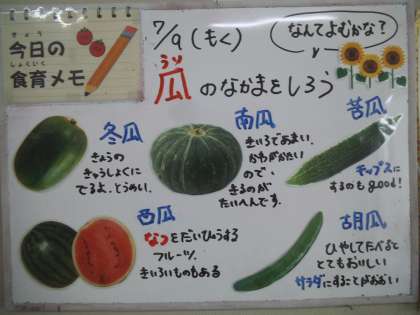 きょう
今日の
しょくいく
食育メモ
7/9(もく)
なんてよむかな?
うり
瓜のなかまをしろう
冬瓜
きょうの
きゅうしょくに
でるよ。とうめい。
南瓜
きいろであまい。
かわがかたい
ので、
きるのが
たいへんです。
苦瓜
チップスに
するのもgood!
西瓜
なつをだいひょうする
フルーツ。
きいろいものもある
胡瓜
ひやしてたべると
とてもおいしい
サラダにすることがおおい